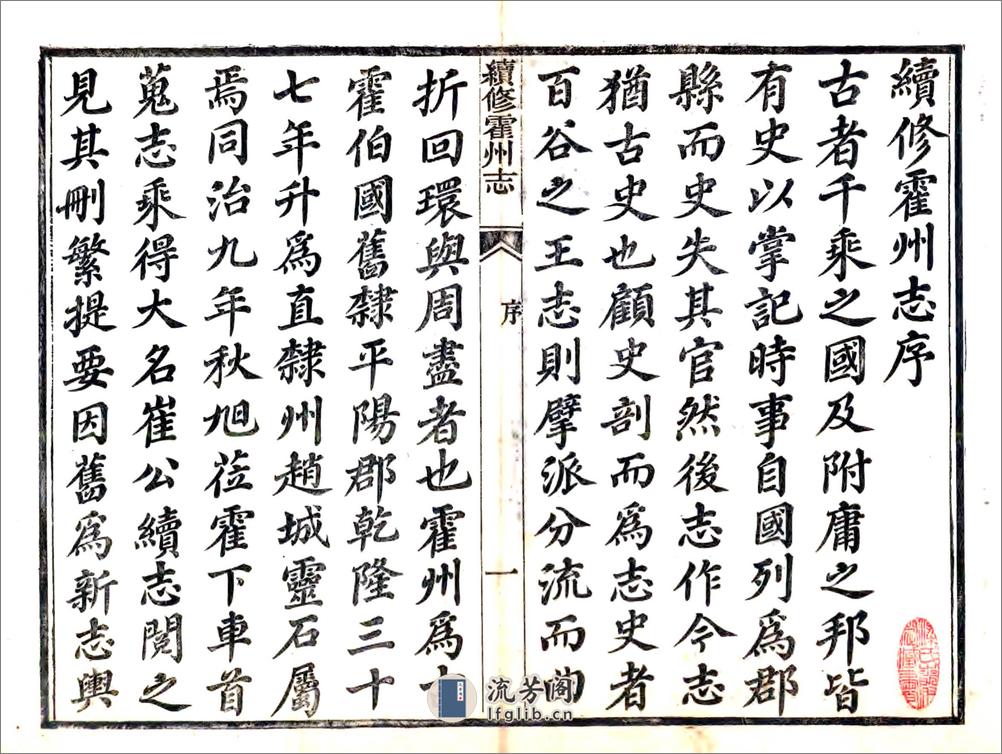 續修霍州志序
古者千乘之國及附庸之邦皆
有史以掌記時事自國列爲郡
縣而史失其官然後志作今志
猶古史也顧史剖而爲志史者
百谷之王志則擘派分流而
續修霍州志
序
一
折回環與周盡者也霍州爲
霍伯國舊隸平陽郡乾隆三十
七年升爲直隸州趙城靈石屬
焉同治九年秋旭莅霍下車首
蒐志乘得大名崔公續志閱之
見其刪繁提要因舊爲新志輿
流芳阁
lfglib.cn